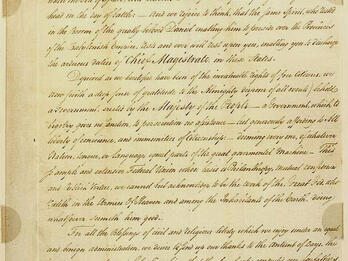 head in the day of battle: — And we rejoice to think, that the same Spirit, who rested
in the Bosom of the greatly beloved Daniel enabling him to preside over the Provinces
of the Babylonish Empire, rests and ever will rest upon you, enabling you to discharge
the arduous duties of Chief Magistrate in these States.
Deprived as we heretofore have been of the invaluable rights of free Citizens, we
now with a deep sense of gratitude to the Almighty disposer of all events behold
a Government, erected by the Majesty of the People — a Government, which to
bigotry gives no sanction, to persecution no assistance — but generously affording to All
liberty of conscience, and immunities of Citizenship: — deeming every one, of whatever
Nation, tongue, or language equal parts of the great governmental Machine: — This
so ample and extensive Federal Union whose basis is Philanthropy, Mutual confidence
and Public Virtue, we cannot but acknowledge to be the work of the Great God, who
ruleth in the Armies Of Heaven and among the Inhabitants of the Earth, doing
whatever seemeth him good.
For all the Blessings of civil and religious liberty which we enjoy under an equal
and benign administration, we desire to send up our thanks to the Antient of Days, the